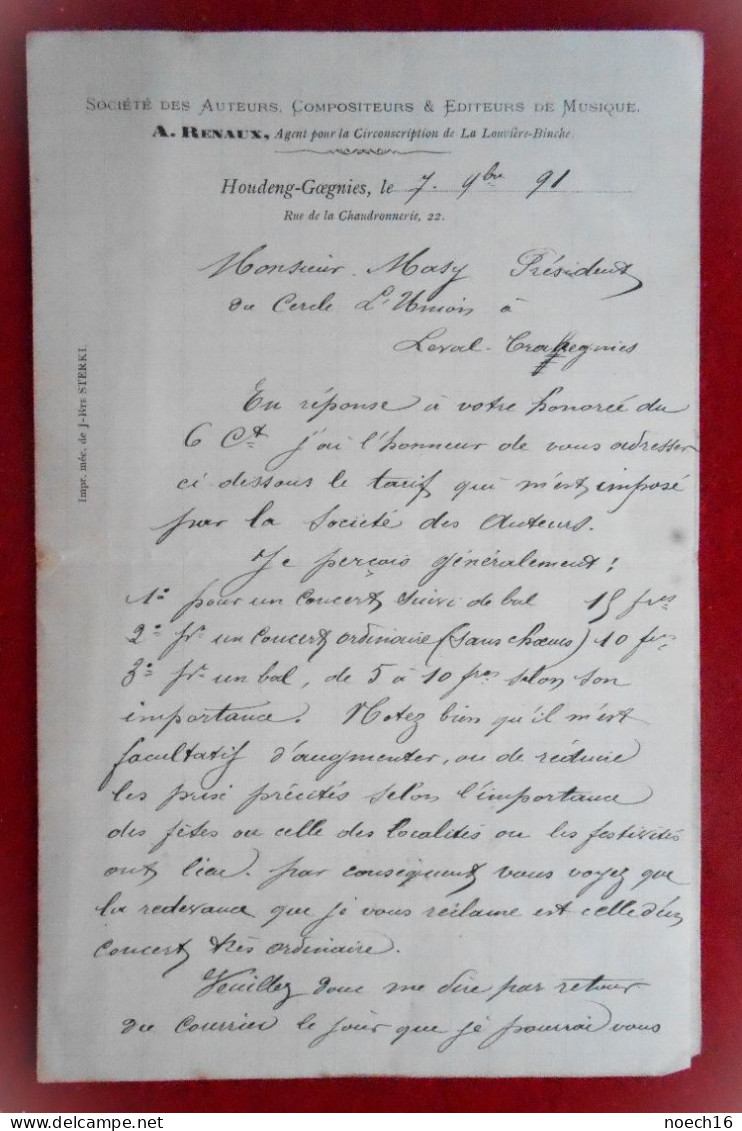 SOCIÉTÉ DES AUTEURS, COMPOSITEURS & EDITEURS DE MUSIQUE.
A. RENAUX, Agent pour la Circonscription de La Louvière-Binche
Houdeng-Gœgnies, le 7. 9bre 91
Rue de la Chaudronnerie, 22.
Monsieur Masy Président
du Cercle L'Union à
Leval-Trahegnies
En réponse à votre honorée du
6 Ct j'ai l'honneur de vous adresser
ci dessous le tarif qui m'est imposé
par la Société des Auteurs.
Je perçois généralement :
1° pour un concert suivi de bal 15 frcs
2° pr un concert ordinaire (sans chœurs) 10 frcs
3° pr un bal, de 5 à 10 frcs selon son
importance. Notez bien qu'il m'est
facultatif d'augmenter, ou de réduire
les prix précités selon l'importance
des fêtes ou celle des localités ou les festivités
ont lieu. par conséquent vous voyez que
la redevance que je vous réclame est celle d'un
concert très ordinaire.
Veuillez donc me dire par retour
du courrier le jour que je pourrai vous
Impr. méc. de J-Bte STERKI.
noech16